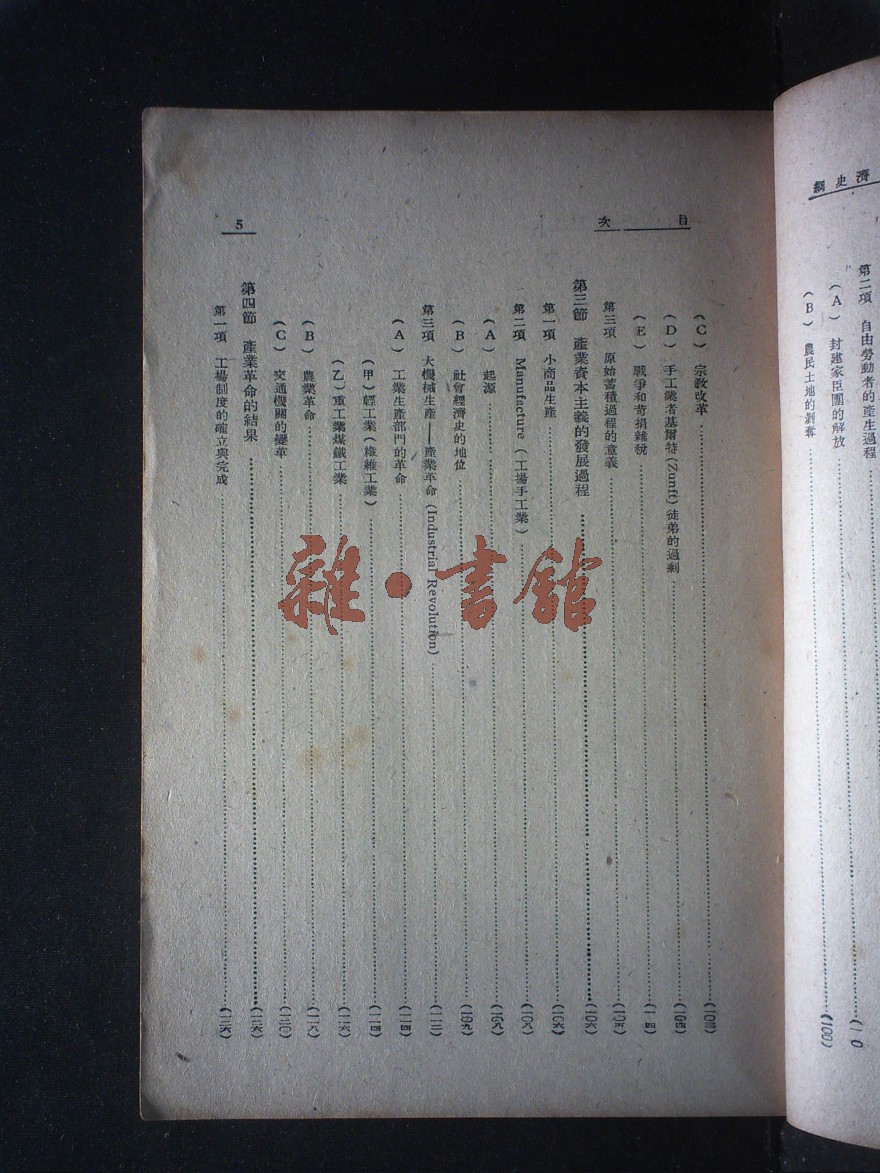 濟史綱
第二項 自由勞動者的產生過程
(A) 封建家臣團的解放
(B) 農民土地的剥奪……(100)
目次
5
(C) 宗教改革……(10三)
(D) 手工業者基爾特(Zunft)徒弟的過剩……(10四)
(E) 戰爭和苛捐雜稅
第三項 原始蓄積過程的意義……(10五)
第三節 產業資本主義的發展過程……(10六)
第一項 小商品生產……(10六)
第二項 Manufacture(工場手工業)……(10八)
(A) 起源……(10八)
(B) 社會經濟史的地位……(10九)
第三項 大機械生產——產業革命(Industrial Revolution)……(一一二)
(A) 工業生產部門的革命……(一一四)
(甲)輕工業(纖維工業)……(一一四)
(乙)重工業煤鐵工業……(一一六)
(B) 農業革命……(一一八)
(C) 交通機關的變革……(一二0)
第四節 產業革命的結果……(一二六)
第一項 工場制度的確立與完成……(一二六)
雜·書館